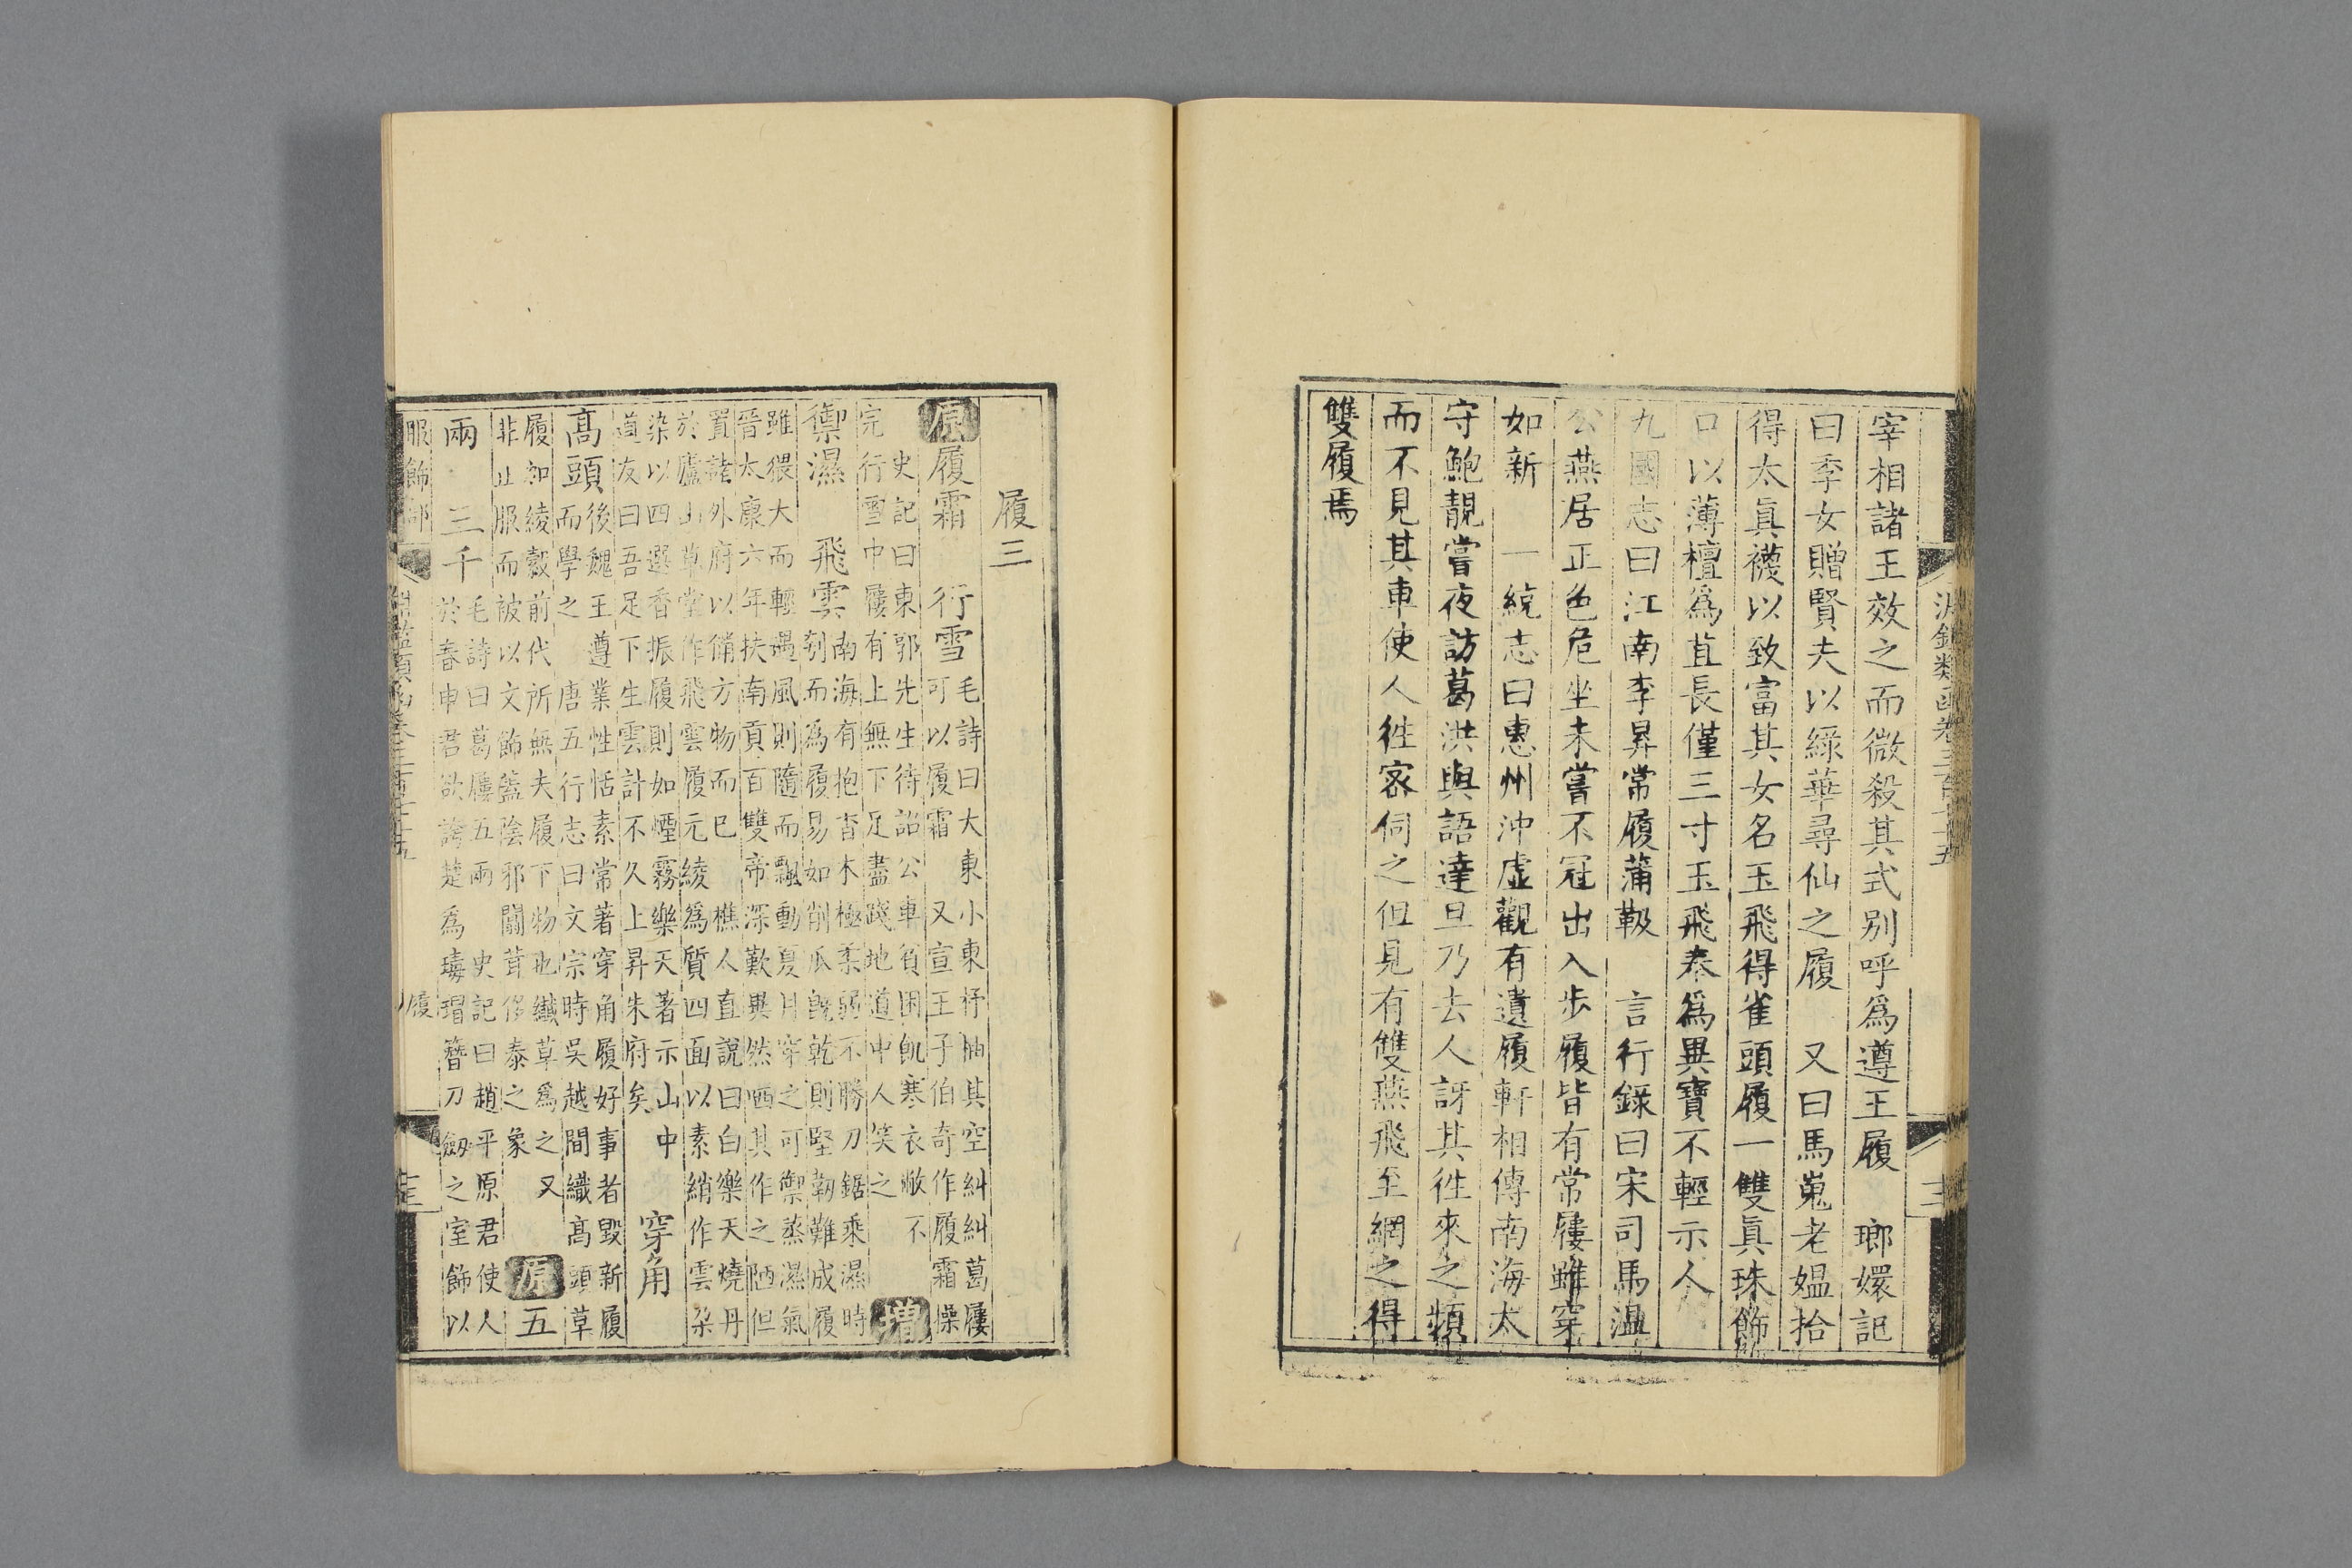 宰相諸王效之而微殺其式别呼為遵王履　瑯嬛記
曰季女贈賢夫以綠華尋仙之履　又曰馬嵬老媪拾
得太真襪以致富其女名玉飛得雀頭履一雙真珠飾
口以薄檀為苴長僅三寸玉飛奉為異寶不輕示人
九國志曰江南李昇常履蒲靸　言行錄曰宋司馬溫
公燕居正色危坐未嘗不冠出入步履皆有常屨雖穿
如新　一統志曰惠州沖虛觀有遺履軒相傳南海太
守鮑靚嘗夜訪葛洪與語達旦乃去人訝其徃來之頻
而不見其車使人徃宻伺之但見有雙燕飛至網之得
雙履焉
履三
原履霜　行雪毛詩曰大東小東杼柚其空糾糾葛屨
可以履霜　又宣王子伯奇作履霜操
史記曰東郭先生待詔公車貧困飢寒衣敝不
完行雪中屨有上無下足盡踐地道中人笑之
增
禦濕　飛雲南海有抱香木極柔弱不勝刀鋸乘濕時
刳而為履易如削瓜既乾則堅韌難成履
雖猥大而輕遇風則隨而飄動夏月穿之可禦蒸濕氣
晉太康六年扶南貢百雙帝深歎異然哂其作之陋但
置諸外府以備方物而已　樵人直說曰白樂天燒丹
於廬山草堂作飛雲履元綾為質四面以素綃作雲朶
染以四選香振履則如煙霧樂天著示山中
道友曰吾足下生雲計不久上昇朱府矣
穿角
高頭後魏王遵業性恬素常著穿角履好事者毀新履
而學之　唐五行志曰文宗時吳越間織高頭草
履如綾縠前代所無夫履下物也織草為之又
非止服而被以文飾蓋陰邪闒茸侈泰之象
原五
兩　三千毛詩曰葛屨五兩　史記曰趙平原君使人
於春申君欲誇楚為瑇瑁簪刀劒之室飾以
服飾部
履